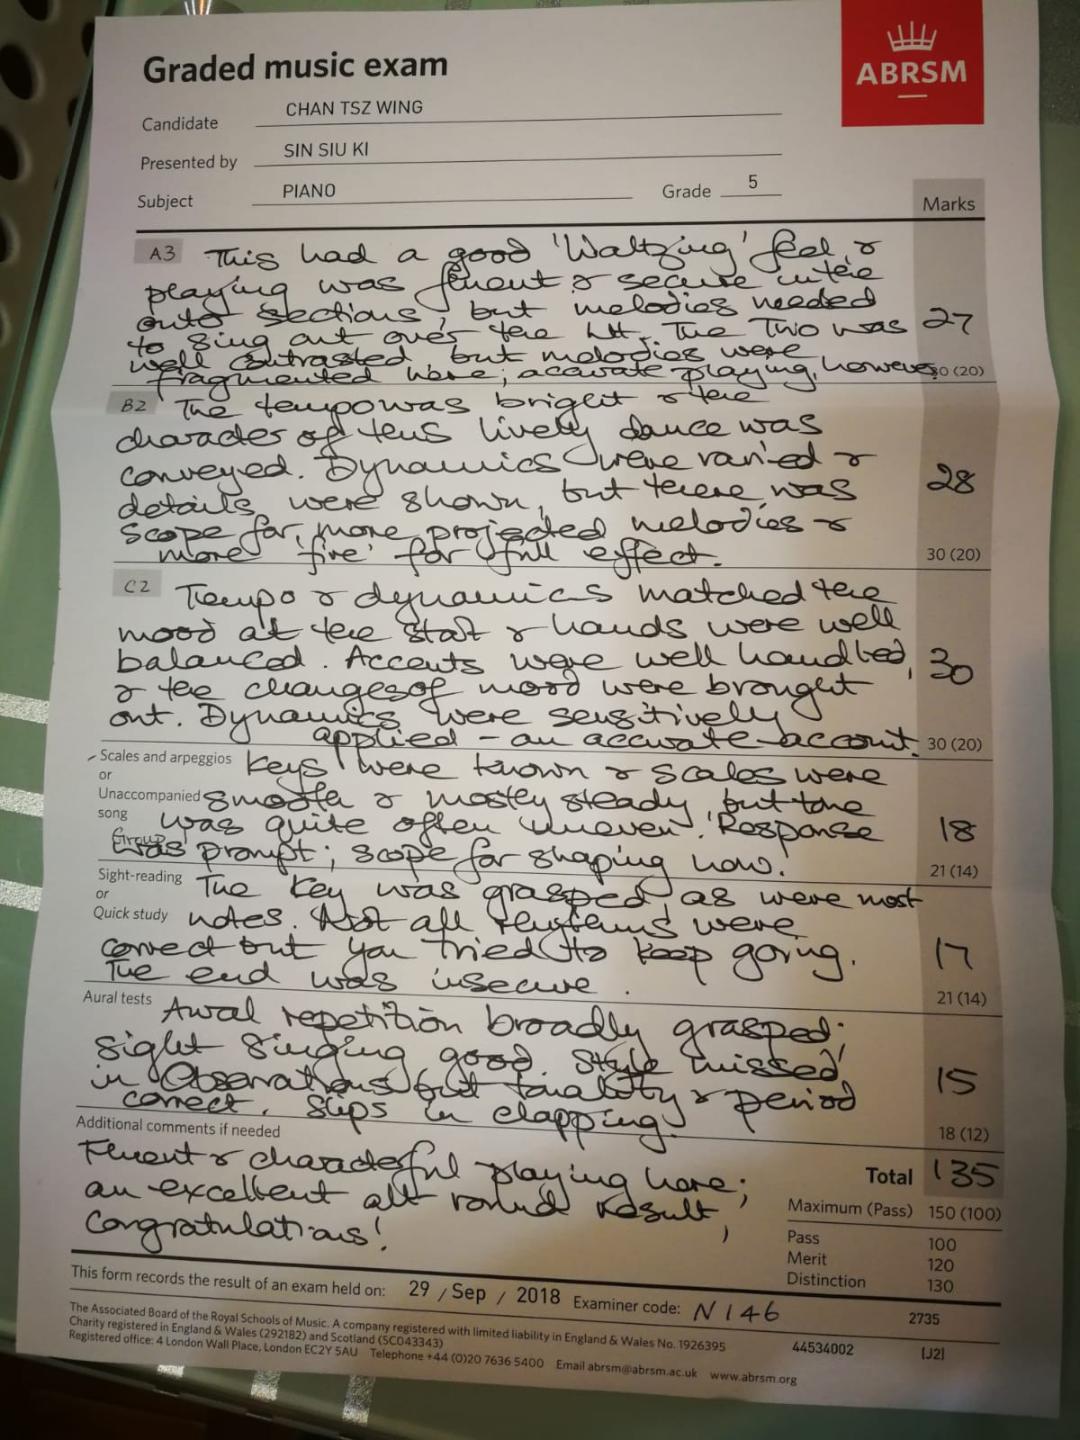 Graded music exam
ABRSM
Candidate CHAN TSZ WING
Presented by SIN SIU KI
Subject PIANO Grade 5
Marks
A3 This had a good 'Waltzing' feel, &
playing was fluent & secure in the
outer sections, but melodies needed
to sing out over the LH. The Trio was 27
well contrasted, but melodies were
fragmented here; accurate playing, however. 30 (20)
B2 The tempo was bright & the
character of this lively dance was
conveyed. Dynamics were varied &
details were shown, but there was 28
scope for more projected melodies &
more 'fire' for full effect. 30 (20)
C2 Tempo & dynamics matched the
mood at the start & hands were well
balanced. Accents were well handled, 30
& the changes of mood were brought
out. Dynamics were sensitively
applied - an accurate account. 30 (20)
Scales and arpeggios Keys were known & scales were
or
Unaccompanied smooth & mostly steady, but tone
song was quite often uneven. Response 18
was prompt; scope for shaping now. 21 (14)
Sight-reading The key was grasped, as were most
or
Quick study notes. Not all rhythms were
correct but you tried to keep going. 17
The end was insecure. 21 (14)
Aural tests Aural repetition broadly grasped;
sight singing good. Style missed
in Observations but tonality & period 15
correct. Slips in clapping. 18 (12)
Additional comments if needed
Fluent & characterful playing here;
an excellent all round result,
Congratulations!
Total 135
Maximum (Pass) 150 (100)
Pass 100
Merit 120
Distinction 130
This form records the result of an exam held on: 29 / Sep / 2018 Examiner code: N146
The Associated Board of the Royal Schools of Music. A company registered with limited liability in England & Wales No. 1926395
Charity registered in England & Wales (292182) and Scotland (SC043343)
Registered office: 4 London Wall Place, London EC2Y 5AU Telephone +44 (0)20 7636 5400 Email abrsm@abrsm.ac.uk www.abrsm.org
2735
44534002 [J2]